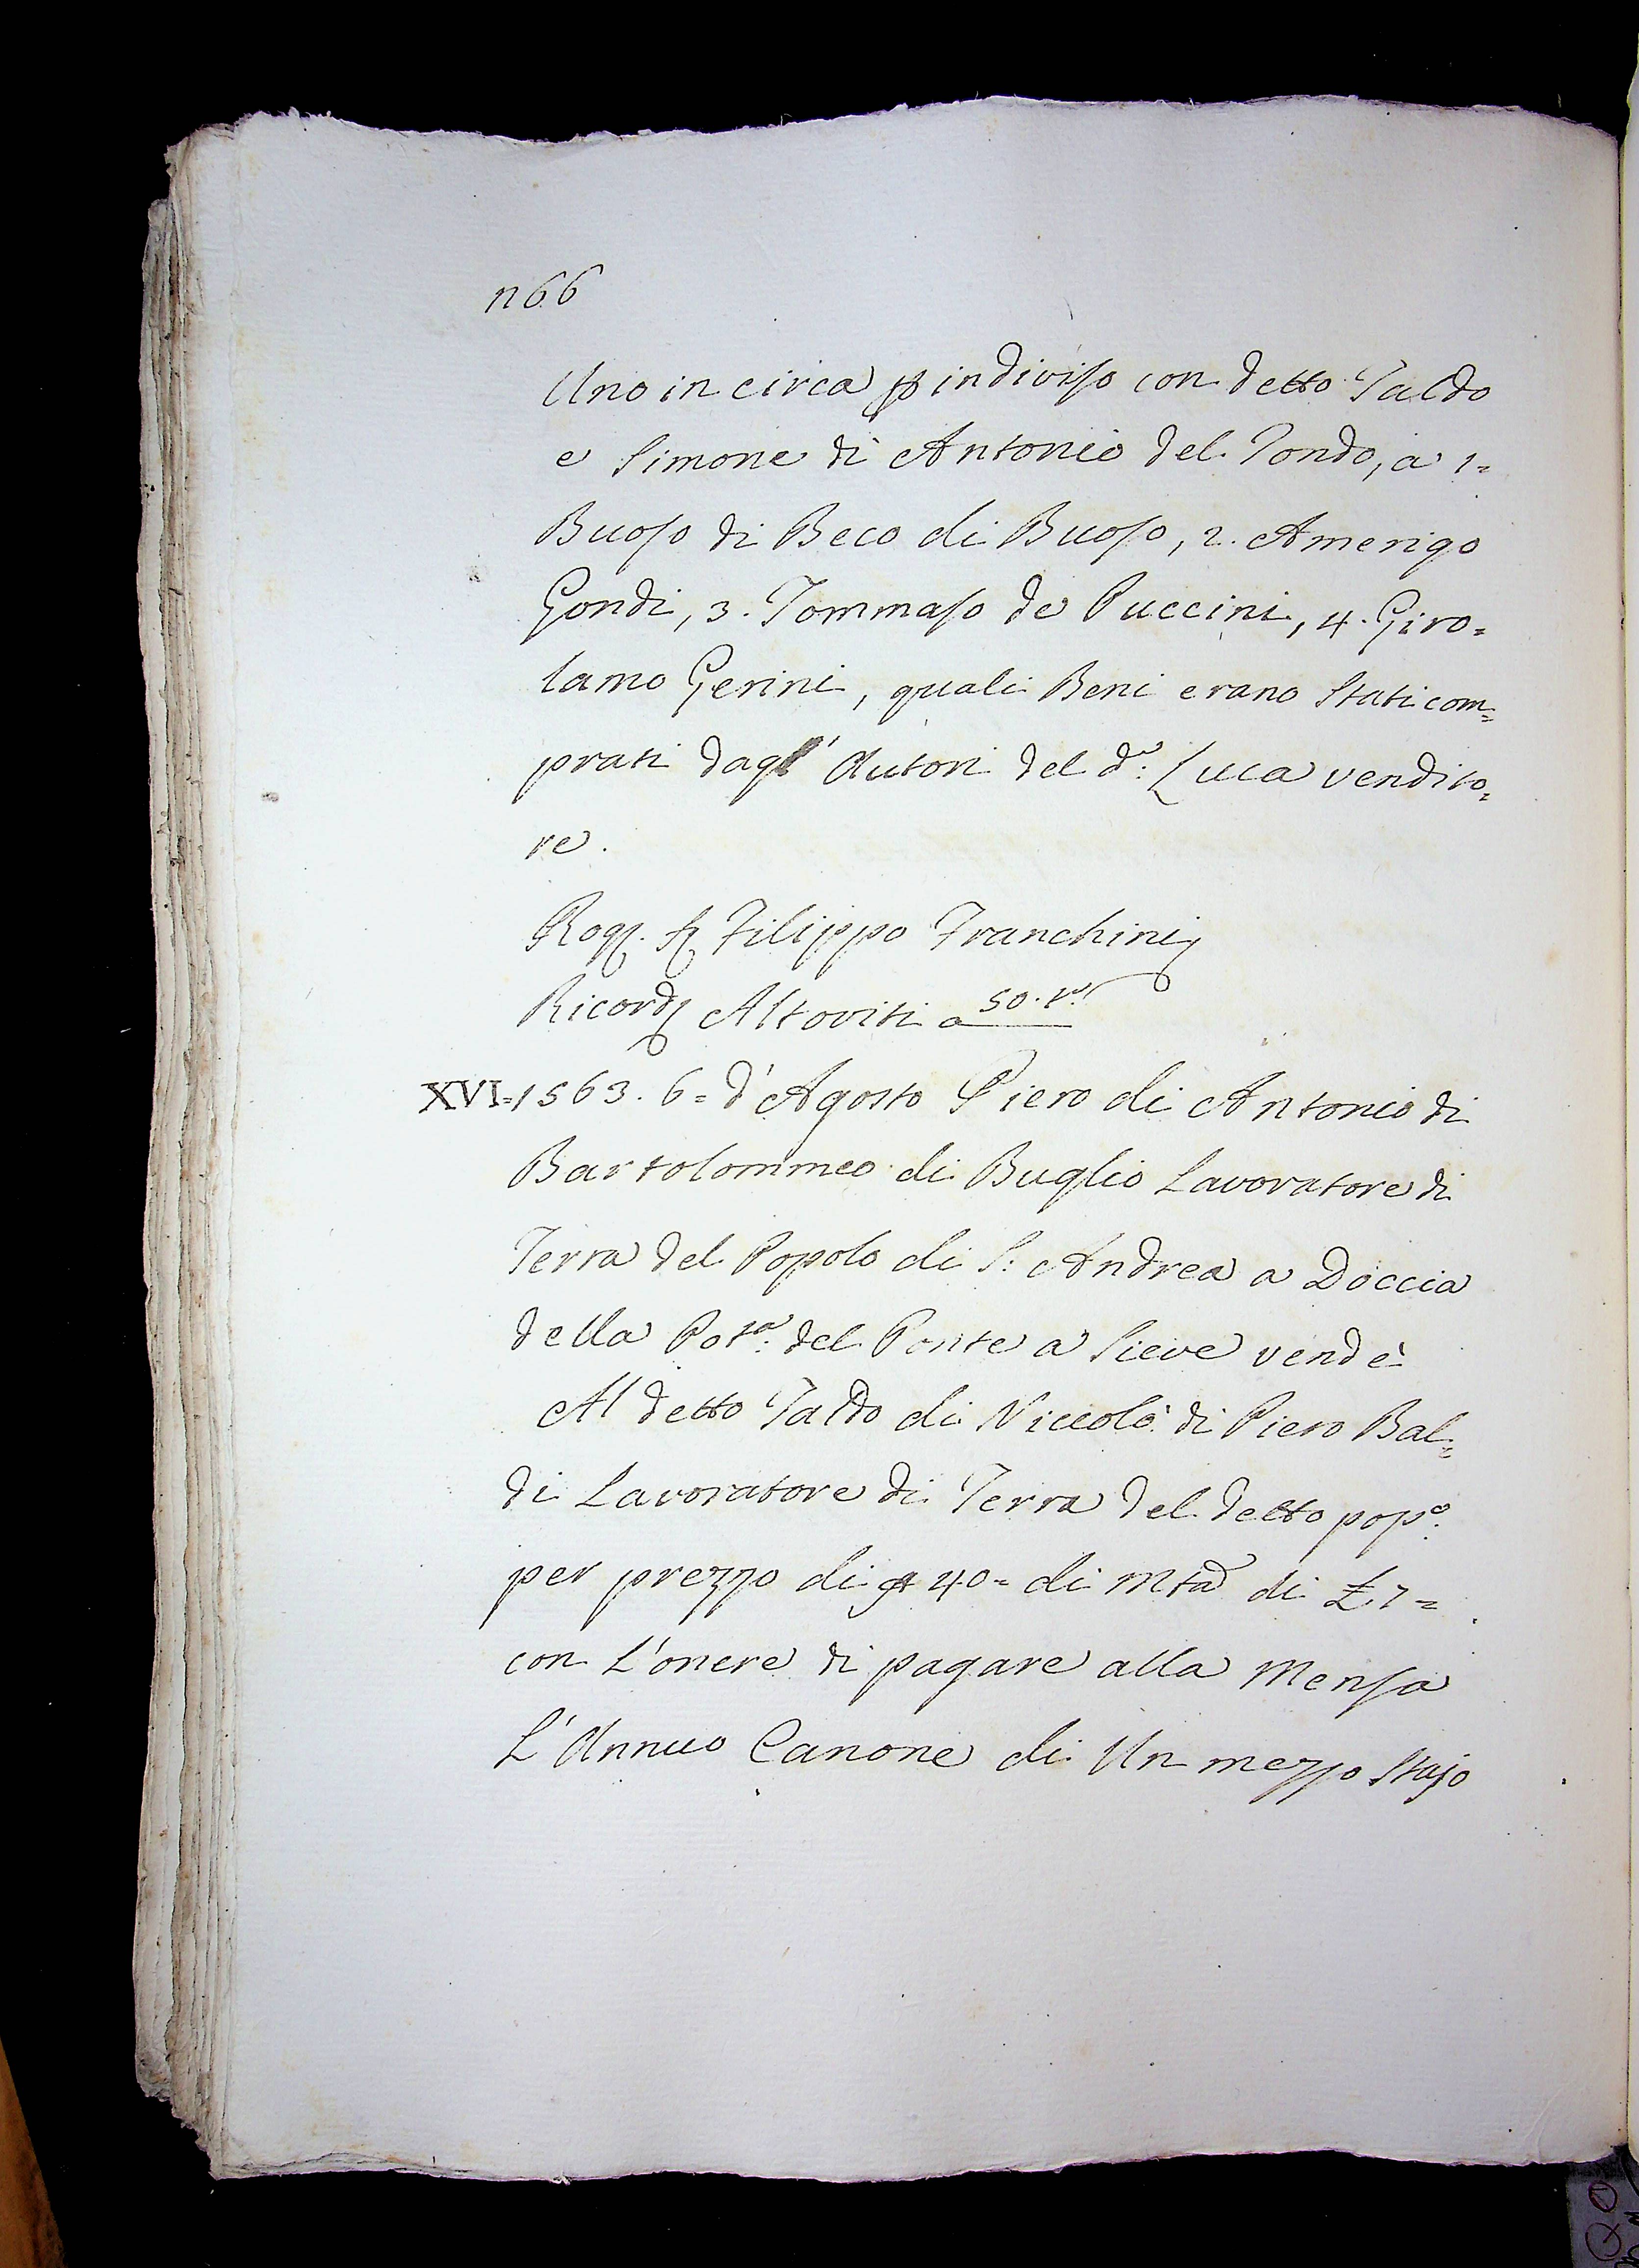 n66
Uno in circa p indiviso con detto Taldo
e Simone di Antonio del Tondo, a 1=
Buoso di Beco di Buoso, 2. Amerigo
Gondi, 3. Tommaso de Puccini, 4. Giro=
lamo Gerini, quali Beni erano Stati com=
prati dagl' Autori del d.º: Luca vendito=
re.
Rog. Filippo Franchini
Ricord Altoviti a 50. tº.
XVI=1563. 6= d'Agosto Piero di Antonio di
Bartolommeo di Buglio Lavoratore di
Terra del Popolo di S: Andrea a Doccia
della Potª: del Ponte a Sieve vendè
Al detto Taldo di Niccolò di Piero Bal=
di Lavoratore di Terra del detto popº:
per prezzo di 40= di Mta di £ 7=
con l'onere di pagare alla Mensa
L'Annuo Canone di Un mezzo Stajo